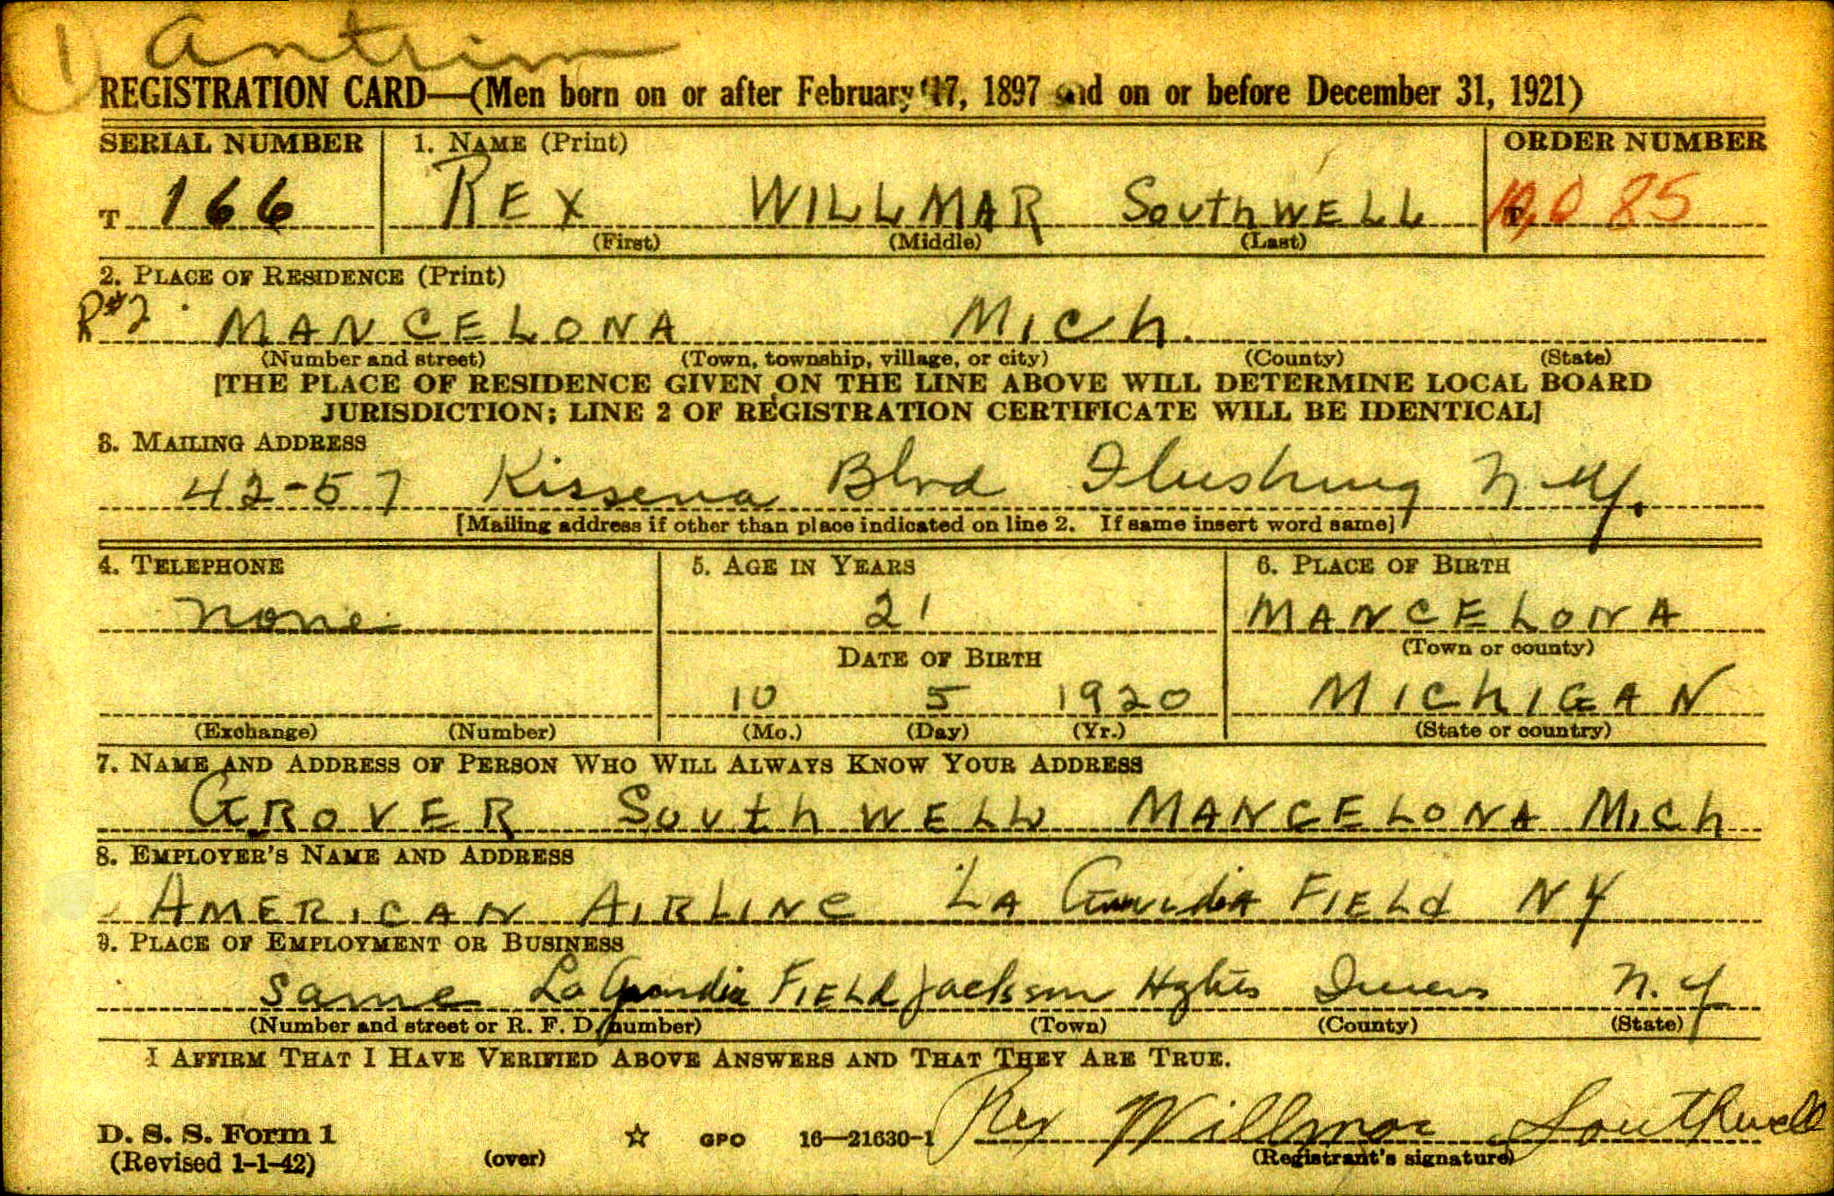 1 Antrim
REGISTRATION CARD—(Men born on or after February 17, 1897 and on or before December 31, 1921)
SERIAL NUMBER 1. NAME (Print) ORDER NUMBER
T 166 REX WILLMAR SouthWELL T 10,085
(First) (Middle) (Last)
2. PLACE OF RESIDENCE (Print)
R#2 MANCELONA MICh.
(Number and street) (Town, township, village, or city) (County) (State)
[THE PLACE OF RESIDENCE GIVEN ON THE LINE ABOVE WILL DETERMINE LOCAL BOARD
JURISDICTION; LINE 2 OF REGISTRATION CERTIFICATE WILL BE IDENTICAL]
3. MAILING ADDRESS
42-57 Kissena Blvd Flushing N.Y.
[Mailing address if other than place indicated on line 2. If same insert word same]
4. TELEPHONE 5. AGE IN YEARS 6. PLACE OF BIRTH
none 21 MANCELONA
DATE OF BIRTH (Town or county)
10 5 1920 MIChIGAN
(Exchange) (Number) (Mo.) (Day) (Yr.) (State or country)
7. NAME AND ADDRESS OF PERSON WHO WILL ALWAYS KNOW YOUR ADDRESS
GROVER SouthWELL MANCELONA MICh
8. EMPLOYER'S NAME AND ADDRESS
AMERICAN AIRLINE LA GuardiA FIELd NY
9. PLACE OF EMPLOYMENT OR BUSINESS
Same La Guardia FIELd Jackson Hghts Queens N.Y
(Number and street or R. F. D. number) (Town) (County) (State)
I AFFIRM THAT I HAVE VERIFIED ABOVE ANSWERS AND THAT THEY ARE TRUE.
Rex Willmar Southwell
D. S. S. Form 1 ☆ GPO 16—21630-1
(Revised 1-1-42) (over) (Registrant's signature)